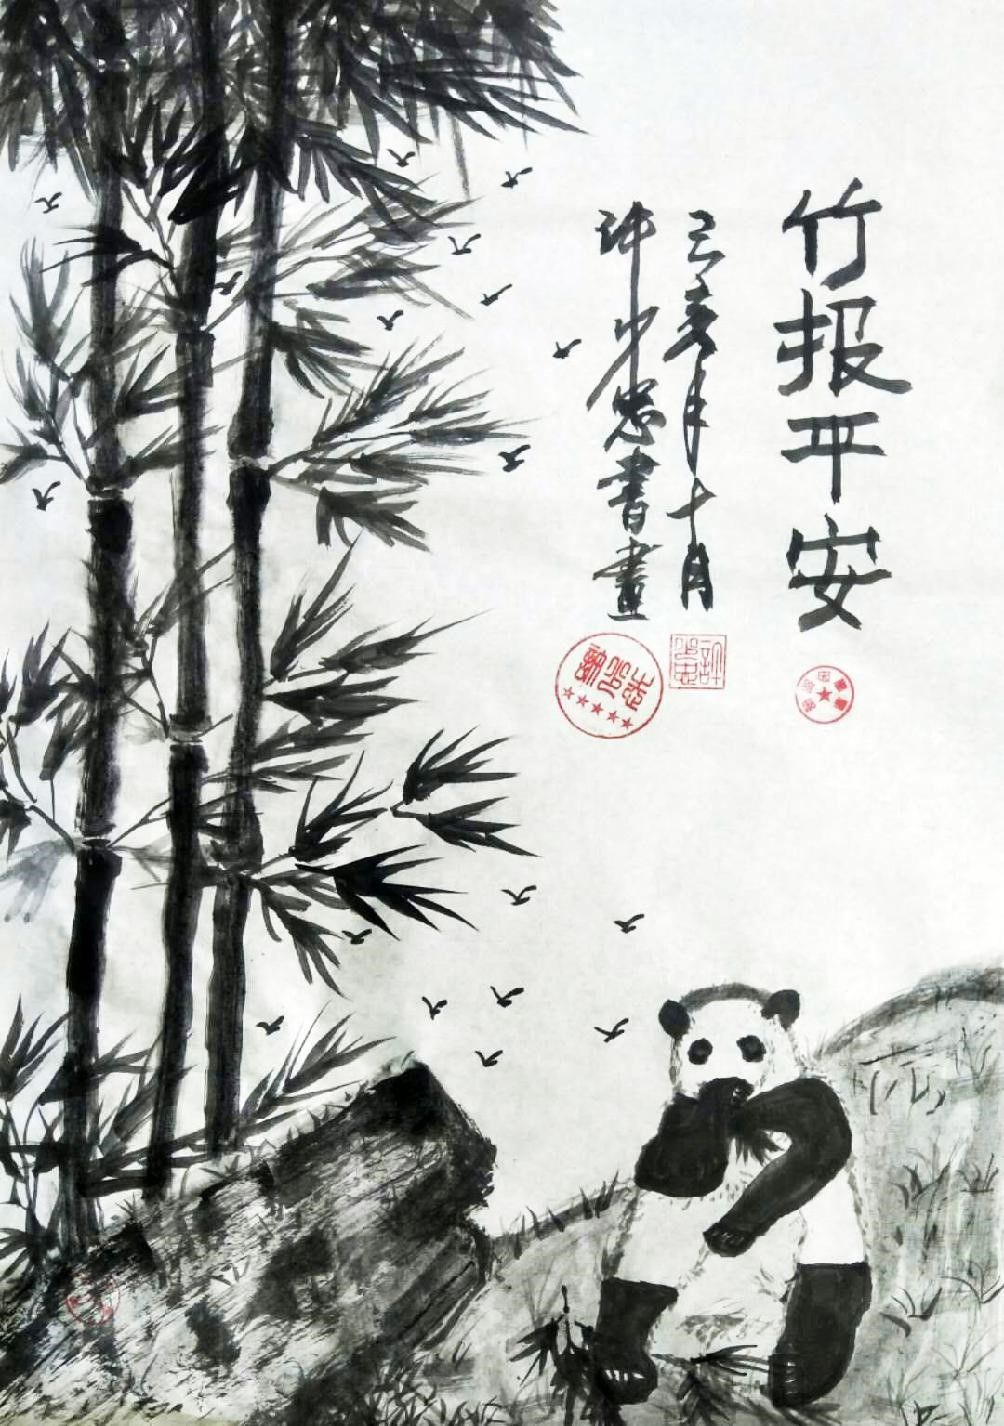 竹报平安
己亥年十月
许少忠書畫